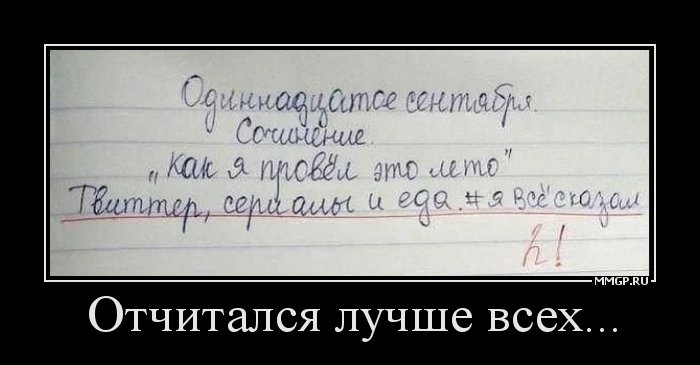 Одиннадцатое сентября.
Сочинение.
„Как я провёл это лето"
Твиттер, сериалы и еда.#я всё сказал
2!
MMGP.RU
Отчитался лучше всех...